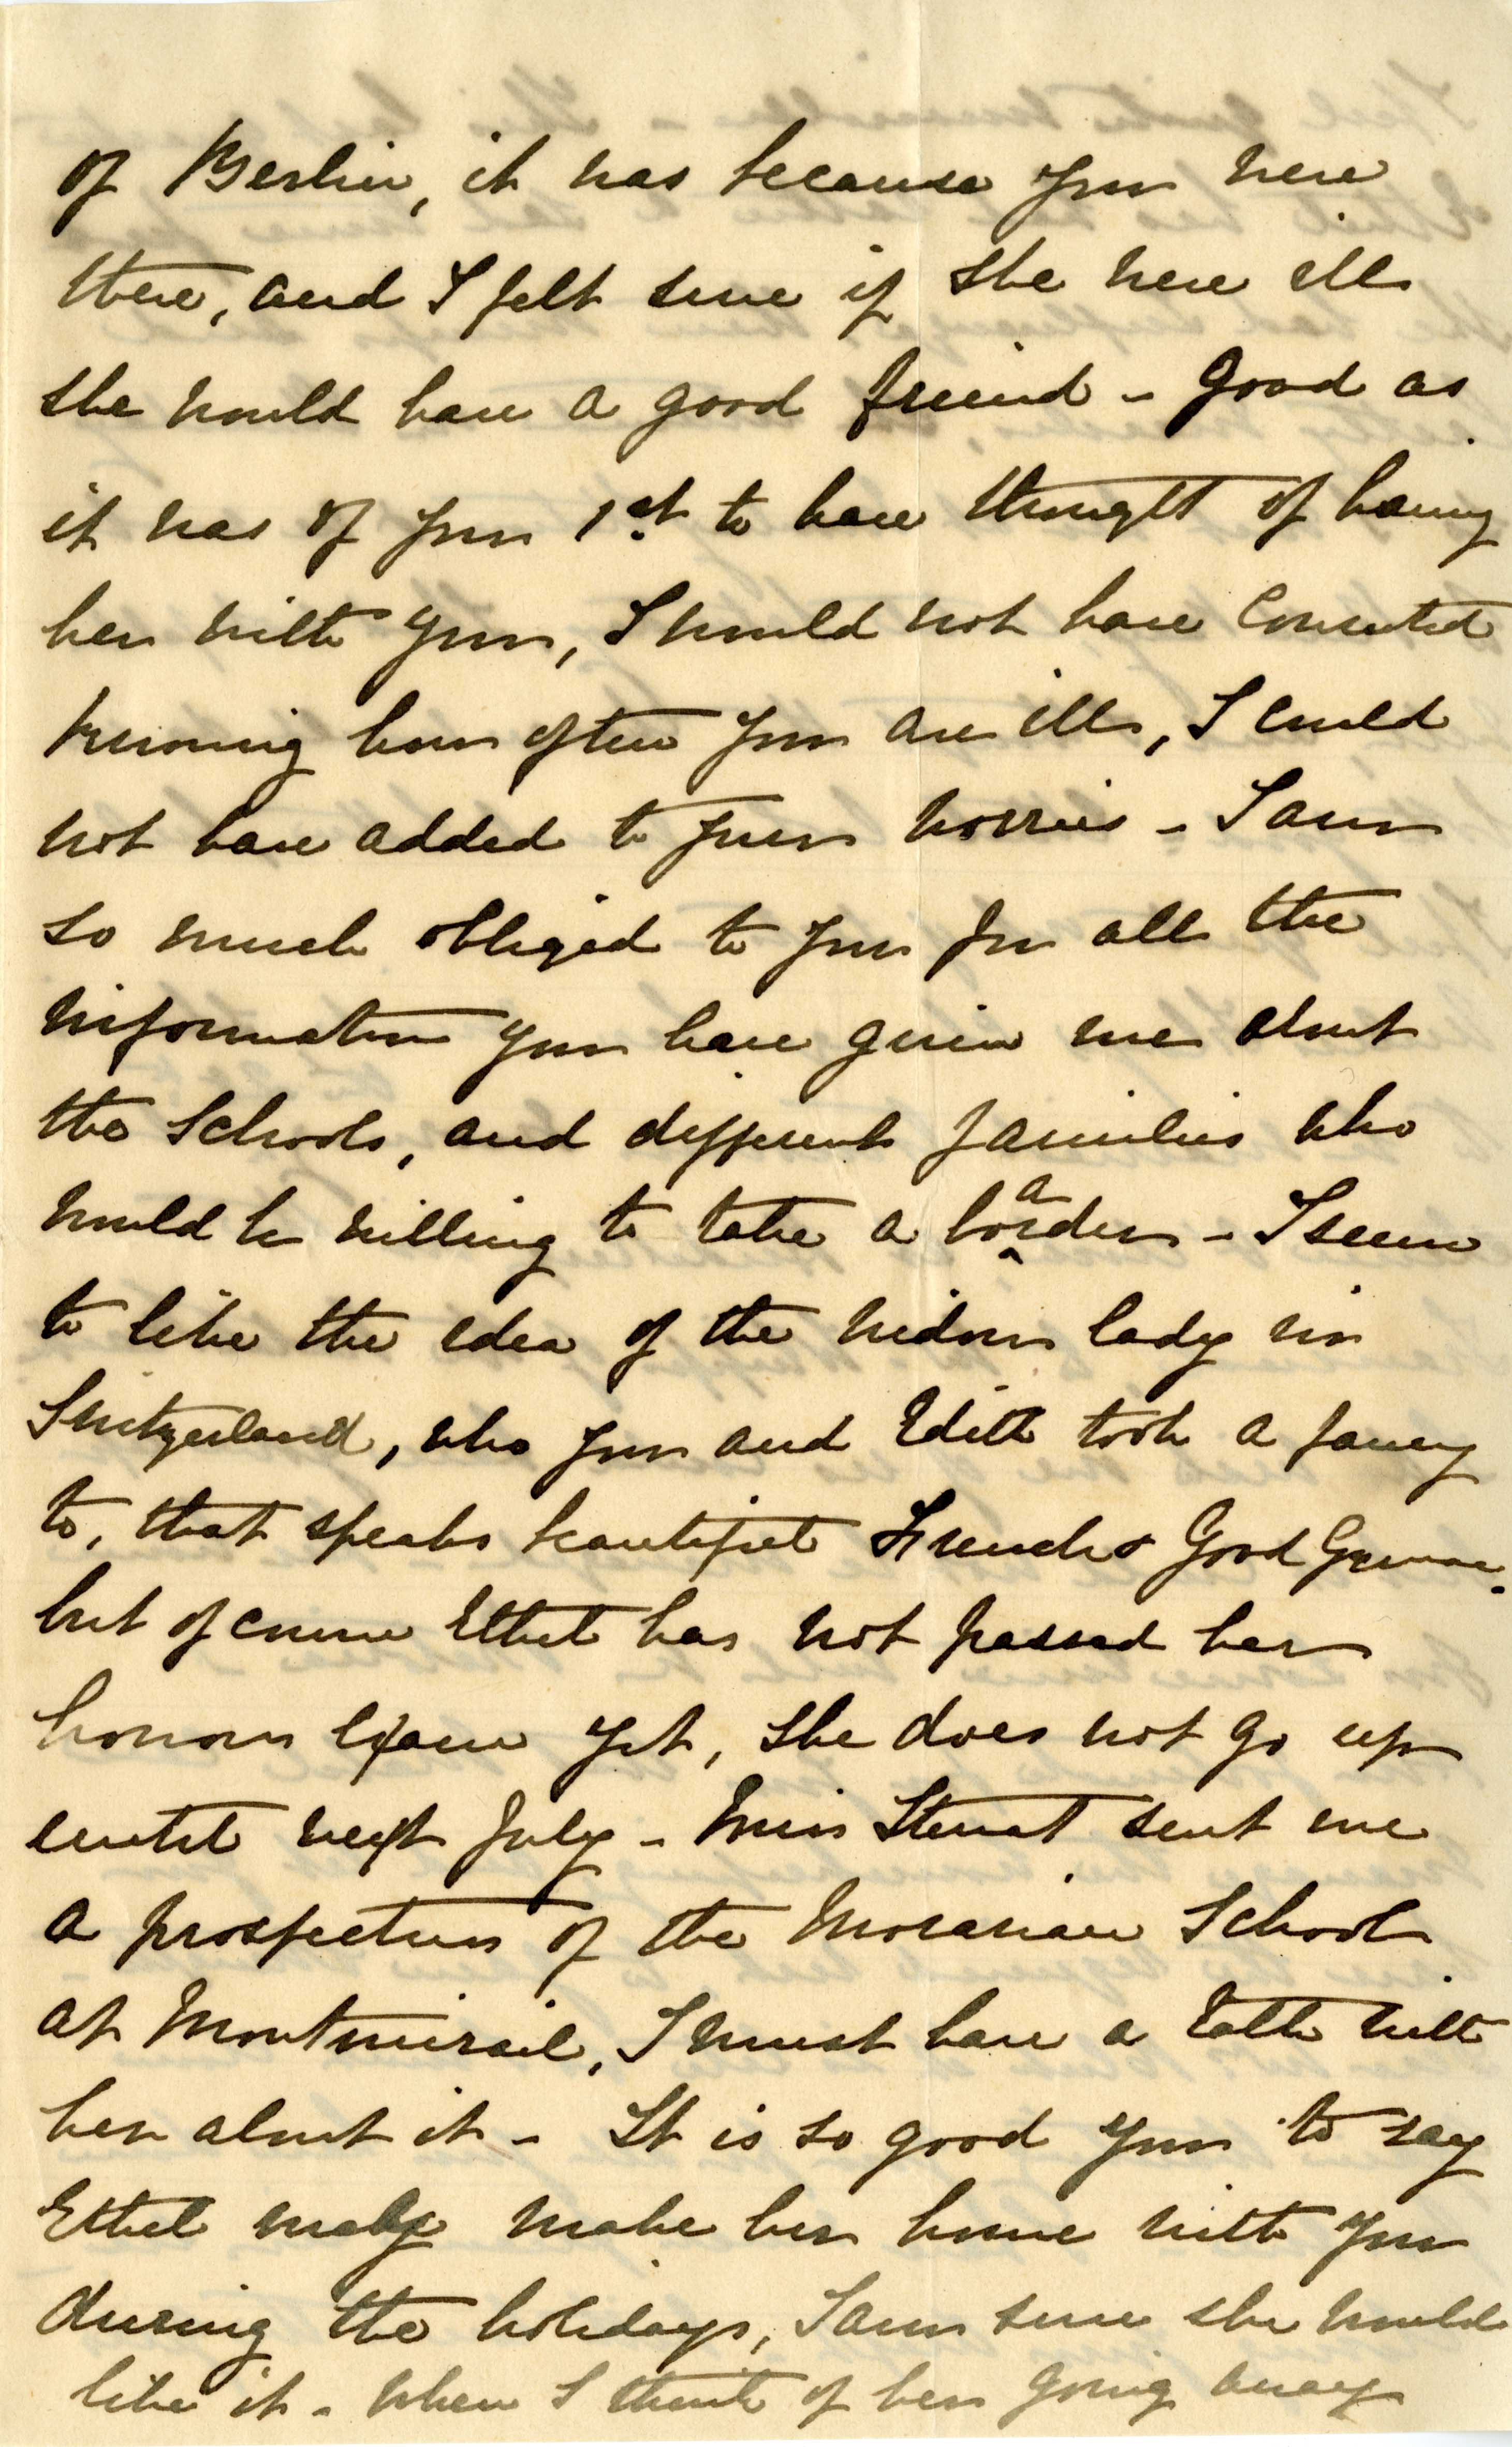 of Berlin, it was because you were
there, and I felt sure if she were ill
she would have a good friend - good as
it was of you 1st to have thought of having
her with you, I would not have consented
knowing how often you are ill, I could
not have added to your worries - I am
so much obliged to you for all the
information you have given me about
the schools, and different families who
would be willing to take a boarder - I seem
to like the idea of the widow lady in
Switzerland, who you and Edith took a fancy
to, that speaks beautiful French & Good German.
but of course Ethel has not passed her
honour exam yet, she does not go up
until next July - Miss Stewart sent me
a prospectus of the Moravian School
at Montmirail, I must have a talk with
her about it - It is so good you to say
Ethel may make her home with you
during the holidays, I am sure she would
like it - When I think of her going away